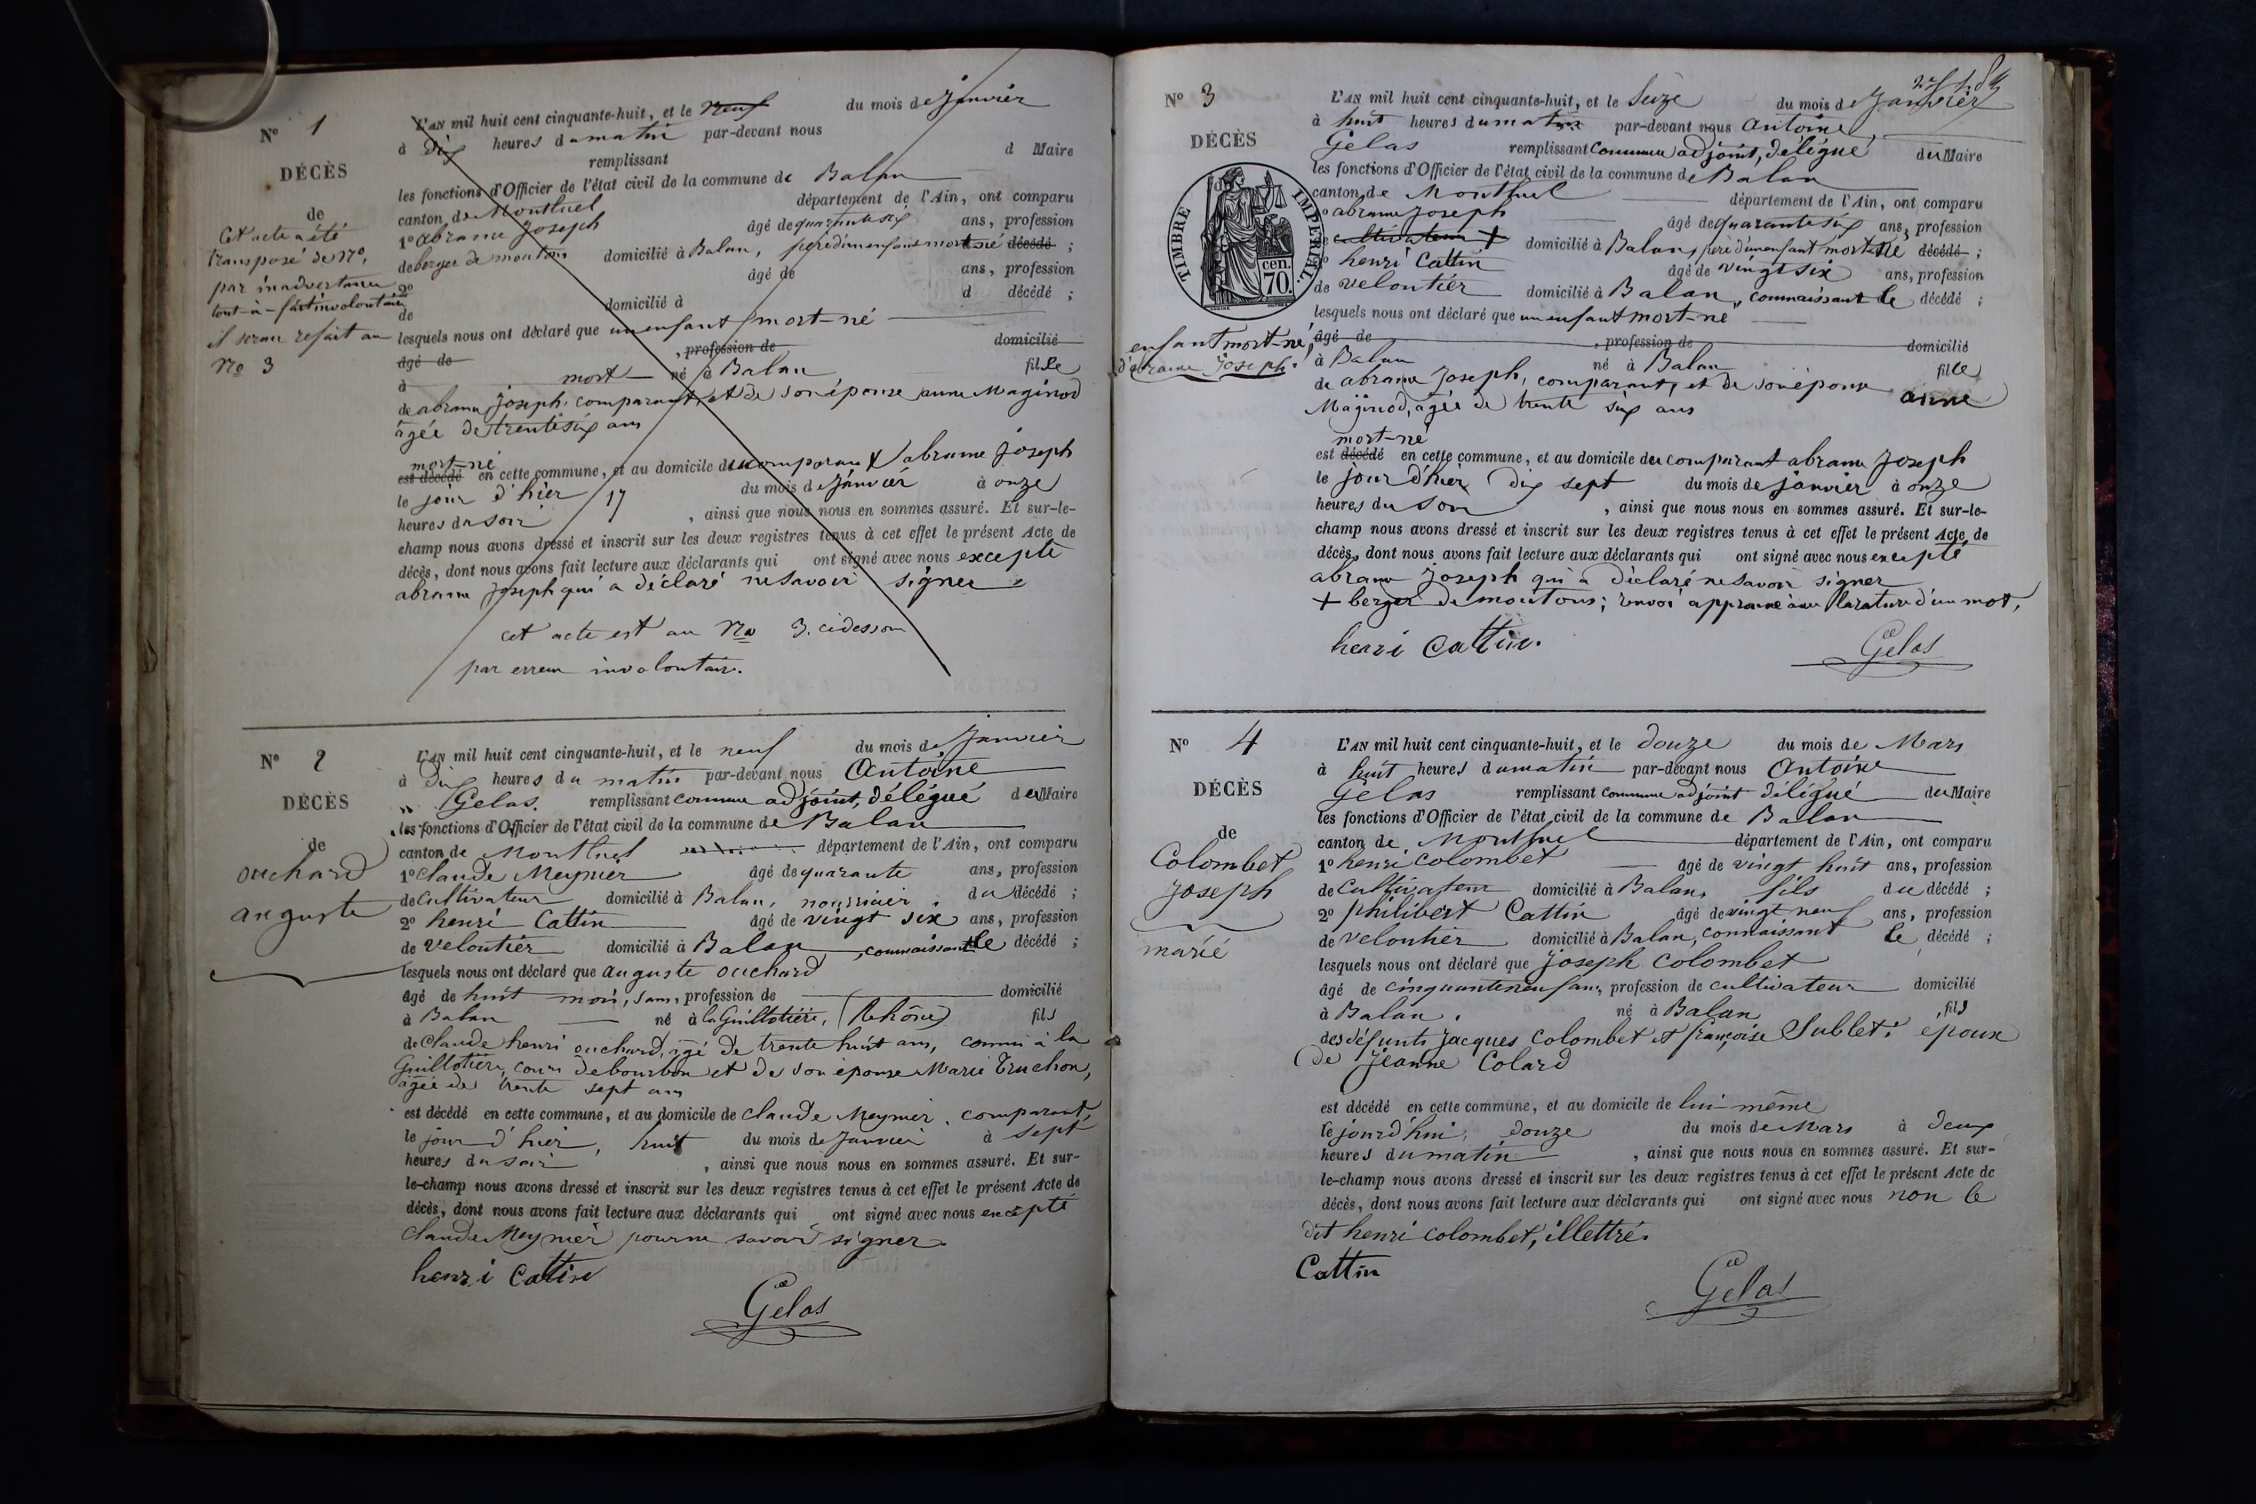 N° 1
DÉCÈS
de
Cet acte a été
transposé de N°,
par inadvertance
tout-à-fait involontaire
il sera refait au
No 3
L'AN mil huit cent cinquante-huit, et le neuf du mois de Janvier
à dix heures du matin par-devant nous
remplissant d Maire
les fonctions d'Officier de l'état civil de la commune de Balan
canton de Montluel département de l'Ain, ont comparu
1° abrame Joseph âgé de quarante six ans, profession
de berger de moutons domicilié à Balan, père d'un enfant mort né décédé ;
2° âgé de ans, profession
de domicilié à d décédé ;
lesquels nous ont déclaré que un enfant mort-né
âgé de , profession de domicilié
à mort né à Balan fils de
de abrame Joseph, comparant, et de son épouse anne Maginod
âgée de trente six ans
mort-né
est décédé en cette commune, et au domicile du comparant abrame Joseph
le jour d'hier 17 du mois de Janvier à onze
heures du soir , ainsi que nous nous en sommes assuré. Et sur-le-
champ nous avons dressé et inscrit sur les deux registres tenus à cet effet le présent Acte de
décès, dont nous avons fait lecture aux déclarants qui ont signé avec nous excepté
abrame Joseph qui a déclaré ne savoir signer
cet acte est au No 3. cidessous
par erreur involontaire.
N° 2
DÉCÈS
de
ouchard
auguste
L'AN mil huit cent cinquante-huit, et le neuf du mois de Janvier
à dix heures du matin par-devant nous Antoine
Gelas remplissant comme adjoint, délégué du Maire
les fonctions d'Officier de l'état civil de la commune de Balan
canton de Montluel département de l'Ain, ont comparu
1° Claude Meynier âgé de quarante ans, profession
de cultivateur domicilié à Balan, nourricier du décédé ;
2° henri Cattin âgé de vingt six ans, profession
de veloutier domicilié à Balan, connaissant le décédé ;
lesquels nous ont déclaré que auguste ouchard
âgé de huit mois, sans, profession de domicilié
à Balan né à la Guillotière, (Rhône) fils
de Claude henri ouchard, âgé de trente huit ans, commis à la
Guillotière, cours debourbon et de son épouse Marie Truchon,
âgée de trente sept ans
est décédé en cette commune, et au domicile de Claude Meynier, comparant,
le jour d'hier, huit du mois de Janvier à sept
heures du soir , ainsi que nous nous en sommes assuré. Et sur-
le-champ nous avons dressé et inscrit sur les deux registres tenus à cet effet le présent Acte de
décès, dont nous avons fait lecture aux déclarants qui ont signé avec nous excepté
Claude Meynier pour ne savoir signer
henri Cattin
Gelas
N° 3
DÉCÈS
TIMBRE IMPÉRIAL
cen.
70.
enfant mort-né,
d'abrame Joseph.
L'AN mil huit cent cinquante-huit, et le Seize du mois de Janvier
à huit heures du matin par-devant nous Antoine
Gelas remplissant comme adjoint, délégué du Maire
les fonctions d'Officier de l'état civil de la commune de Balan
canton de Montluel département de l'Ain, ont comparu
1° abrame Joseph âgé de quarante six ans, profession
de cultivateur + domicilié à Balan, père d'un enfant mort né décédé ;
2° henri Cattin âgé de vingt six ans, profession
de veloutier domicilié à Balan, connaissant le décédé ;
lesquels nous ont déclaré que un enfant mort-né
âgé de , profession de domicilié
à Balan né à Balan fils de
de abrame Joseph, comparant, et de son épouse anne
Maginod, âgée de trente six ans
mort-né
est décédé en cette commune, et au domicile du comparant abrame Joseph
le jour d'hier dix sept du mois de janvier à onze
heures du soir , ainsi que nous nous en sommes assuré. Et sur-le-
champ nous avons dressé et inscrit sur les deux registres tenus à cet effet le présent Acte de
décès, dont nous avons fait lecture aux déclarants qui ont signé avec nous excepté
abrame Joseph qui a déclaré ne savoir signer
+ berger de moutons; renvoi approuvé avec la rature d'un mot,
henri Cattin.
Gelas
N° 4
DÉCÈS
de
Colombet
Joseph
marié
L'AN mil huit cent cinquante-huit, et le douze du mois de Mars
à huit heures du matin par-devant nous Antoine
Gelas remplissant comme adjoint délégué du Maire
les fonctions d'Officier de l'état civil de la commune de Balan
canton de Montluel département de l'Ain, ont comparu
1° henri Colombet âgé de vingt huit ans, profession
de cultivateur domicilié à Balan, fils du décédé ;
2° philibert Cattin âgé de vingt neuf ans, profession
de veloutier domicilié à Balan, connaissant le décédé ;
lesquels nous ont déclaré que Joseph Colombet
âgé de cinquante neuf ans, profession de cultivateur domicilié
à Balan. né à Balan, fils
des défunts Jacques Colombet et françoise Sublet; époux
de Jeanne Colard
est décédé en cette commune, et au domicile de lui-même
le jourd'hui, douze du mois de Mars à deux
heures du matin , ainsi que nous nous en sommes assuré. Et sur-
le-champ nous avons dressé et inscrit sur les deux registres tenus à cet effet le présent Acte de
décès, dont nous avons fait lecture aux déclarants qui ont signé avec nous non le
dit henri Colombet, illettré.
Cattin
Gelas